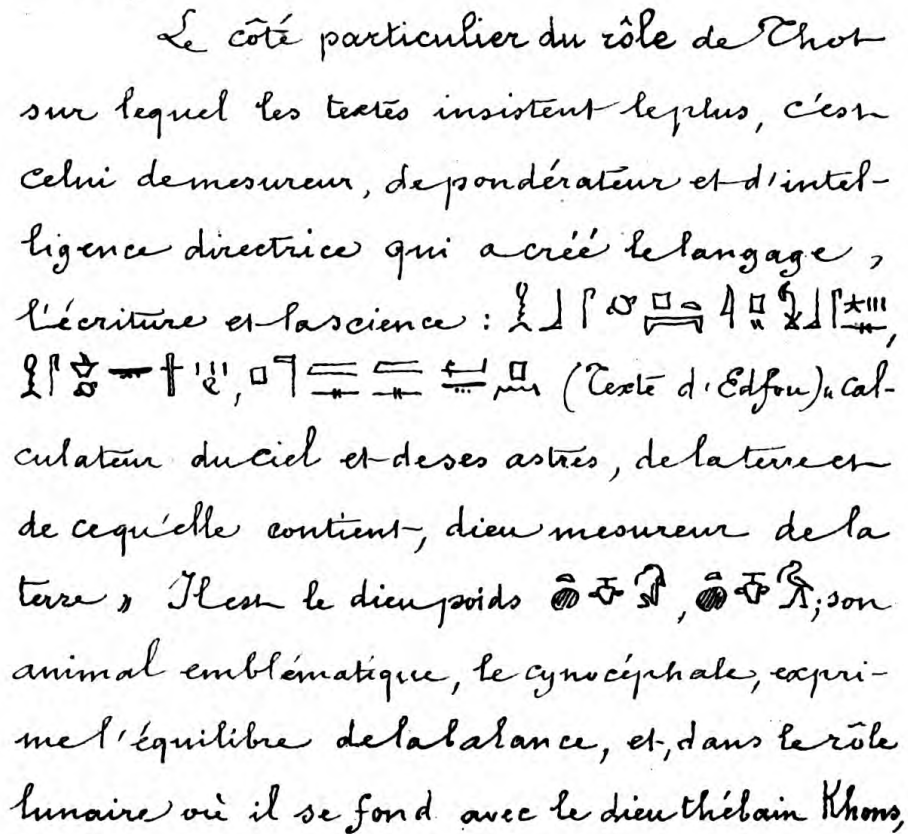 Le côté particulier du rôle de Thot
sur lequel les textes insistent le plus, c'est
celui de mesureur, de pondérateur et d'intel-
ligence directrice qui a créé le langage,
l'écriture et la science :
(Texte d'Edfou) « cal-
culateur du ciel et de ses astres, de la terre et
de ce qu'elle contient, dieu mesureur de la
terre » Il est le dieu poids , ; son
animal emblématique, le cynocéphale, expri-
me l'équilibre de la balance, et, dans le rôle
lunaire où il se fond avec le dieu thébain Khons,